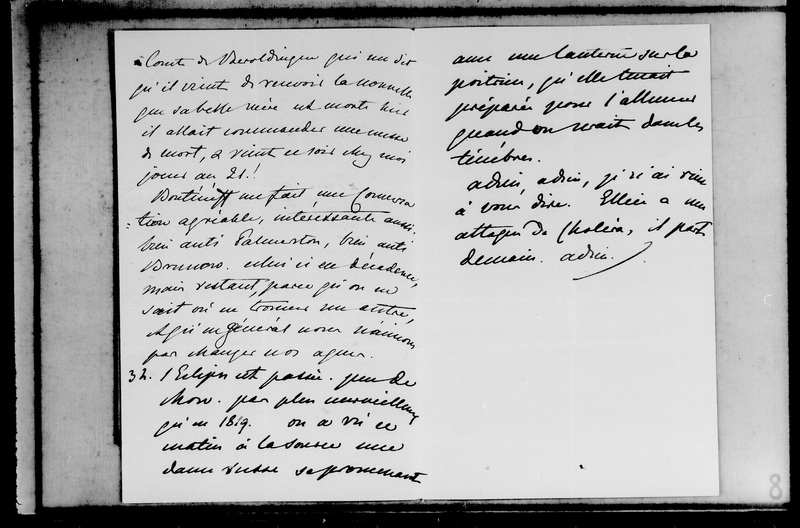 Comte de Beroldingen qui me dit
qu'il vient de recevoir la nouvelle
que sa belle mère est morte hier
il allait commander une messe
de mort, & vient ce soir chez moi
jouer au 21.!
Boutenieff me fait une Conversa
=tion agréable, intéressante aussi.
bien anti Palmerston, bien anti
Brunnow. celui ci en décadence,
mais restant, parce qu'on ne
sait où en trouver un autre,
& qu'en général nous n'aimons
pas changer nos agens.
3 h. l'Eclipse est passée. peu de
chose. pas plus merveilleux
qu'en 1819. on a vu ce
matin à la source une
dame russe se promenant
avec une lanterne sur la
poitrine, qu'elle tenait
préparée pour l'allumer
quand on serait dans les
ténèbres.
adieu, adieu, je n'ai rien
à vous dire. Ellice a une
attaque de Choléra, il part
demain. adieu.
8